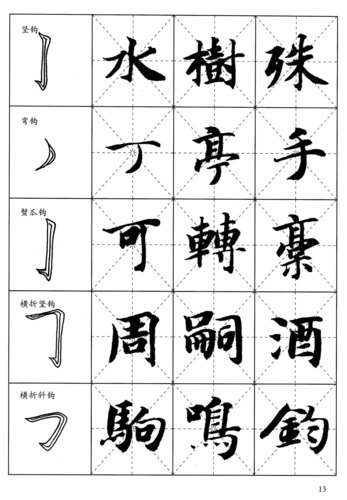 竖钩
水 樹 殊
弯钩
丁 亭 手
蟹爪钩
可 轉 稾
横折竖钩
周 嗣 酒
横折斜钩
駒 鳴 釣
13